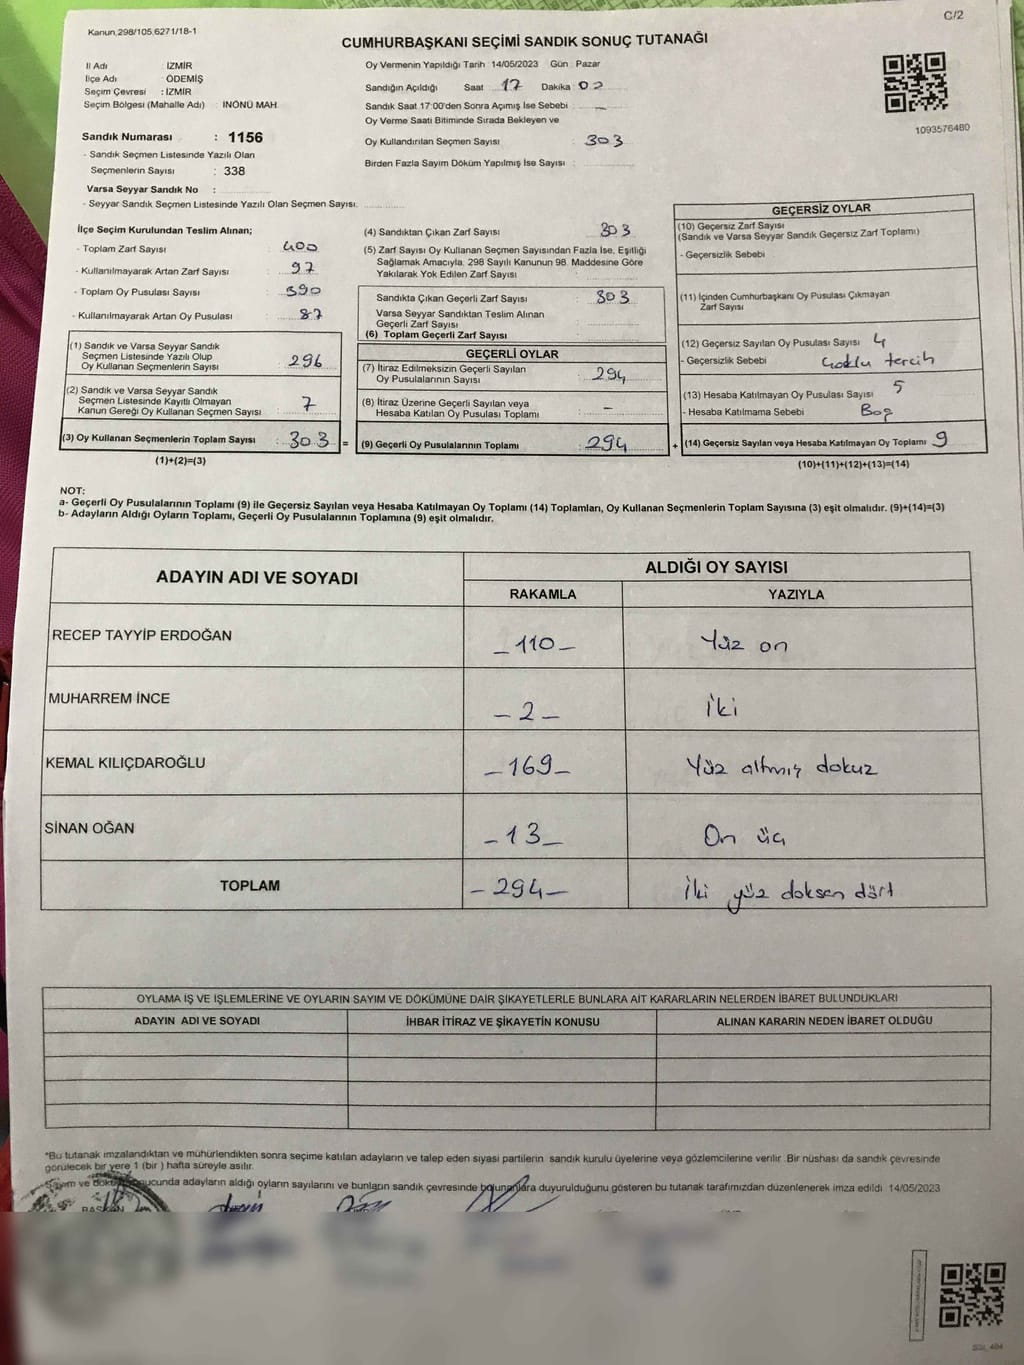 C/2
Kanun,298/105,6271/18-1
CUMHURBAŞKANI SEÇİMİ SANDIK SONUÇ TUTANAĞI
İl Adı : İZMİR
İlçe Adı : ÖDEMİŞ
Seçim Çevresi : İZMİR
Seçim Bölgesi (Mahalle Adı) : İNÖNÜ MAH
Sandık Numarası : 1156
- Sandık Seçmen Listesinde Yazılı Olan
Seçmenlerin Sayısı : 338
Varsa Seyyar Sandık No :
- Seyyar Sandık Seçmen Listesinde Yazılı Olan Seçmen Sayısı.
Oy Vermenin Yapıldığı Tarih : 14/05/2023 Gün : Pazar
Sandığın Açıldığı Saat 17 Dakika 02
Sandık Saat 17:00'den Sonra Açımış İse Sebebi : —
Oy Verme Saati Bitiminde Sırada Bekleyen ve
Oy Kullandırılan Seçmen Sayısı : 303
Birden Fazla Sayım Döküm Yapılmış İse Sayısı :
1093576480
İlçe Seçim Kurulundan Teslim Alınan;
- Toplam Zarf Sayısı : 400
- Kullanılmayarak Artan Zarf Sayısı : 97
- Toplam Oy Pusulası Sayısı : 390
- Kullanılmayarak Artan Oy Pusulası : 87
(1) Sandık ve Varsa Seyyar Sandık
Seçmen Listesinde Yazılı Olup
Oy Kullanan Seçmenlerin Sayısı : 296
(2) Sandık ve Varsa Seyyar Sandık
Seçmen Listesinde Kayıtlı Olmayan
Kanun Gereği Oy Kullanan Seçmen Sayısı : 7
(3) Oy Kullanan Seçmenlerin Toplam Sayısı : 303 =
(1)+(2)=(3)
(4) Sandıktan Çıkan Zarf Sayısı : 303
(5) Zarf Sayısı Oy Kullanan Seçmen Sayısından Fazla İse, Eşitliği
Sağlamak Amacıyla, 298 Sayılı Kanunun 98. Maddesine Göre
Yakılarak Yok Edilen Zarf Sayısı :
Sandıkta Çıkan Geçerli Zarf Sayısı : 303
Varsa Seyyar Sandıktan Teslim Alınan
Geçerli Zarf Sayısı :
(6) Toplam Geçerli Zarf Sayısı
GEÇERLİ OYLAR
(7) İtiraz Edilmeksizin Geçerli Sayılan
Oy Pusulalarının Sayısı : 294
(8) İtiraz Üzerine Geçerli Sayılan veya
Hesaba Katılan Oy Pusulası Toplamı : –
(9) Geçerli Oy Pusulalarının Toplamı : 294 +
GEÇERSİZ OYLAR
(10) Geçersiz Zarf Sayısı
(Sandık ve Varsa Seyyar Sandık Geçersiz Zarf Toplamı)
- Geçersizlik Sebebi
(11) İçinden Cumhurbaşkanı Oy Pusulası Çıkmayan
Zarf Sayısı
(12) Geçersiz Sayılan Oy Pusulası Sayısı 4
- Geçersizlik Sebebi Çoklu tercih
(13) Hesaba Katılmayan Oy Pusulası Sayısı 5
- Hesaba Katılmama Sebebi Boş
(14) Geçersiz Sayılan veya Hesaba Katılmayan Oy Toplamı 9
(10)+(11)+(12)+(13)=(14)
NOT:
a- Geçerli Oy Pusulalarının Toplamı (9) ile Geçersiz Sayılan veya Hesaba Katılmayan Oy Toplamı (14) Toplamları, Oy Kullanan Seçmenlerin Toplam Sayısına (3) eşit olmalıdır. (9)+(14)=(3)
b- Adayların Aldığı Oyların Toplamı, Geçerli Oy Pusulalarının Toplamına (9) eşit olmalıdır.
ADAYIN ADI VE SOYADI ALDIĞI OY SAYISI
RAKAMLA YAZIYLA
RECEP TAYYİP ERDOĞAN –110– Yüz on
MUHARREM İNCE –2– İki
KEMAL KILIÇDAROĞLU –169– Yüz altmış dokuz
SİNAN OĞAN –13– On üç
TOPLAM –294– İki yüz doksan dört
OYLAMA İŞ VE İŞLEMLERİNE VE OYLARIN SAYIM VE DÖKÜMÜNE DAİR ŞİKAYETLERLE BUNLARA AİT KARARLARIN NELERDEN İBARET BULUNDUKLARI
ADAYIN ADI VE SOYADI İHBAR İTİRAZ VE ŞİKAYETİN KONUSU ALINAN KARARIN NEDEN İBARET OLDUĞU
*Bu tutanak imzalandıktan ve mühürlendikten sonra seçime katılan adayların ve talep eden siyasi partilerin sandık kurulu üyelerine veya gözlemcilerine verilir. Bir nüshası da sandık çevresinde
görülecek bir yere 1 (bir ) hafta süreyle asılır.
ucunda adayların aldığı oyların sayılarını ve bunların sandık çevresinde bulunanlara duyurulduğunu gösteren bu tutanak tarafımızdan düzenlenerek imza edildi 14/05/2023
BAŞKAN